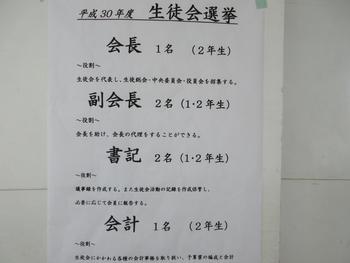 平成30年度 生徒会選挙
会長 1名 (2年生)
～役割～
生徒会を代表し、生徒総会・中央委員会・役員会を招集する。
副会長 2名 (1・2年生)
～役割～
会長を助け、会長の代理をすることができる。
書記 2名 (1・2年生)
～役割～
議事録を作成する。また生徒会活動の記録を作成保管し、
必要に応じて会員に報告する。
会計 1名 (2年生)
～役割～
生徒会にかかわる各種の会計事務を取り扱い、予算案の編成と会計